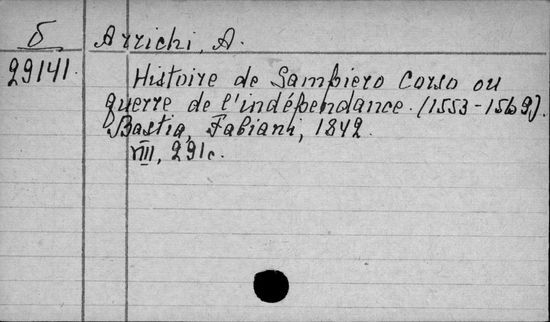 Б
29141.
Arrichi, A.
Histoire de Sampiero Corso ou
guerre de l'indépendance. (1553-1569).
Bastia, Fabiani, 1842.
VIII, 291c.